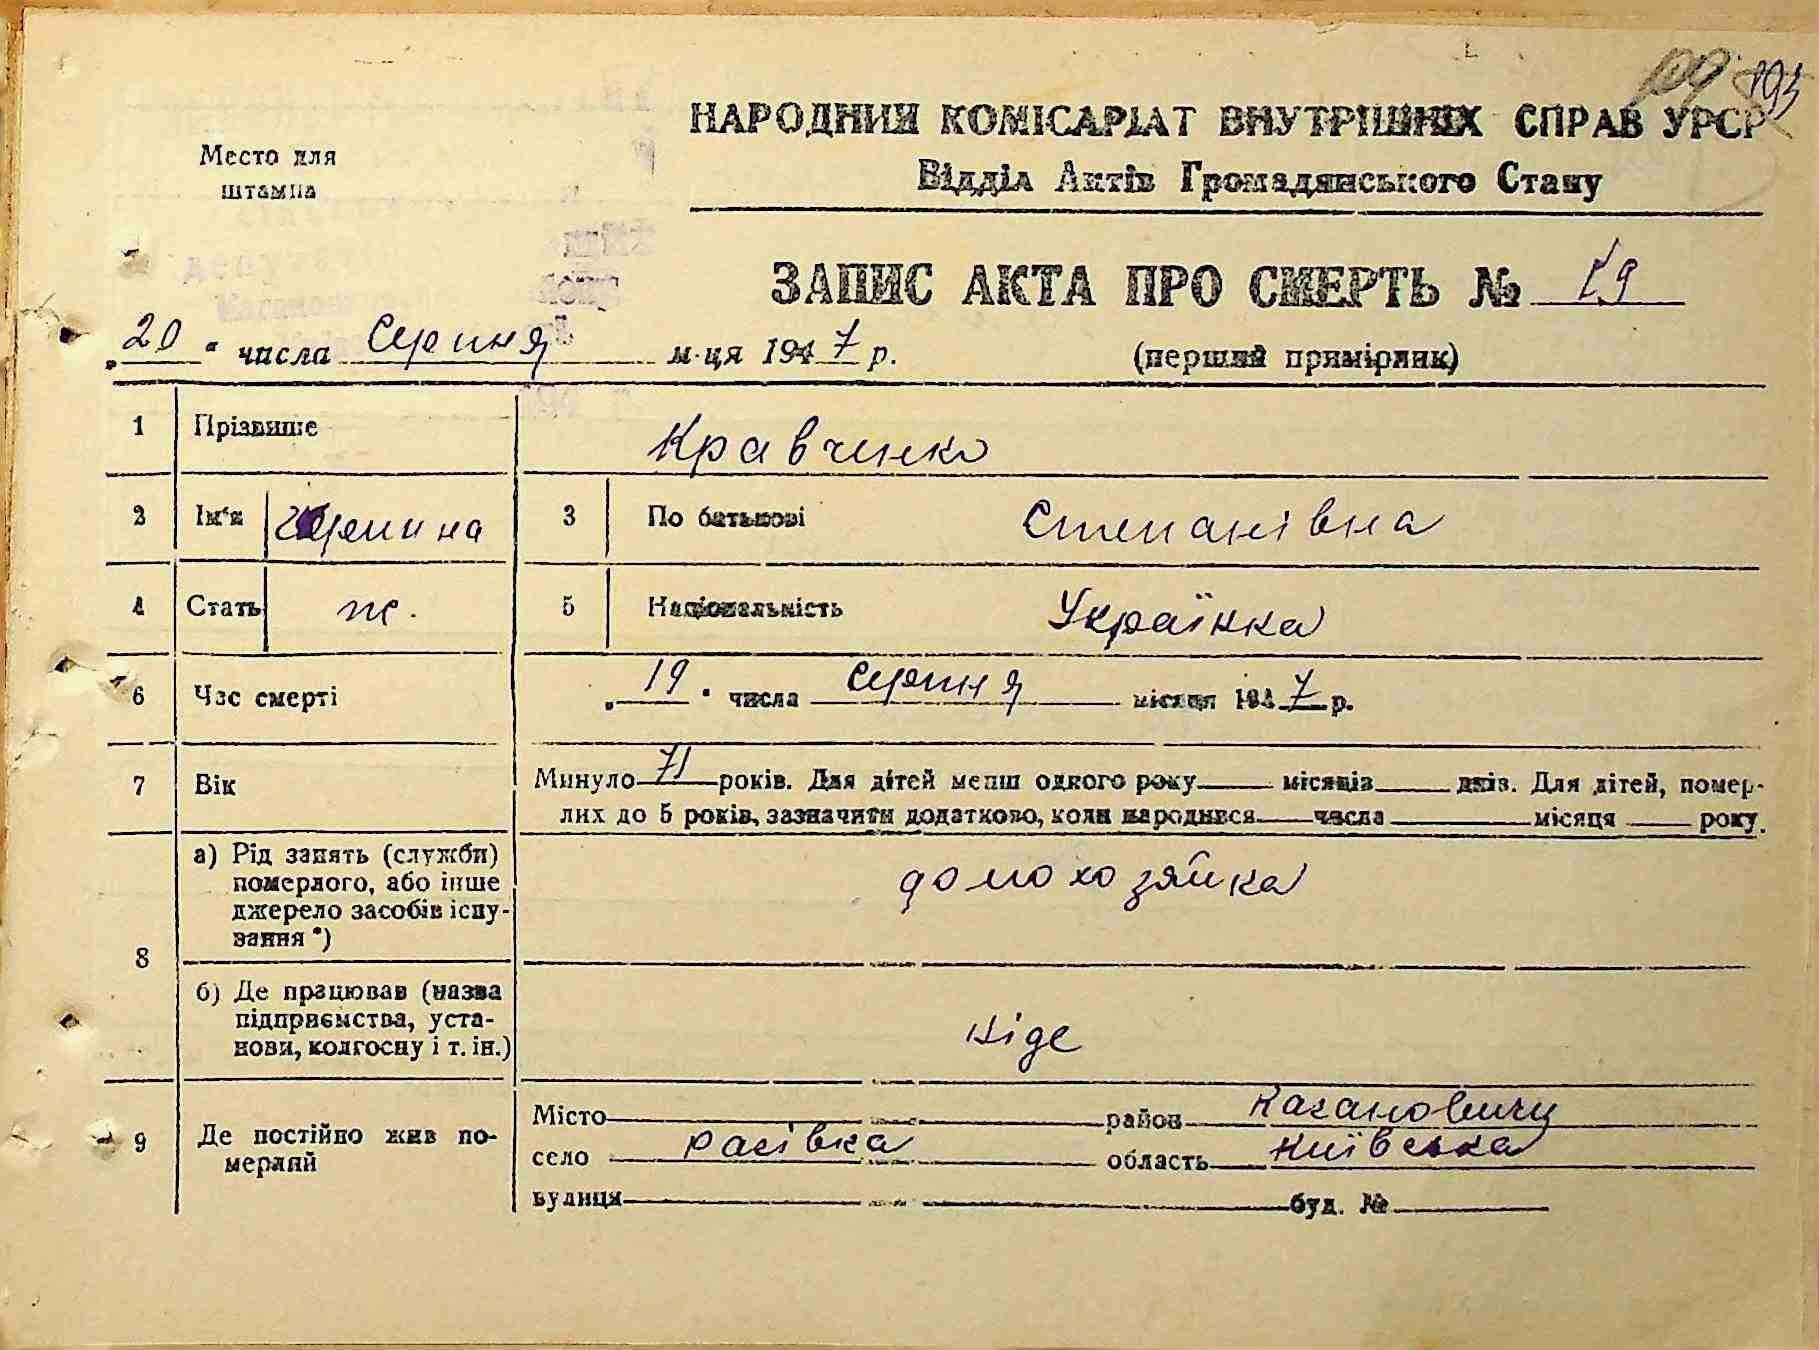 193
Место для
штампа
НАРОДНИЙ КОМІСАРІАТ ВНУТРІШНІХ СПРАВ УРСР
Відділ Актів Громадянського Стану
ЗАПИС АКТА ПРО СМЕРТЬ № 19
„20“ числа Серпня м-ця 1947 р. (перший примірник)
1 Прізвище Кравченко
2 Ім'я 3 По батькові Степанівна
4 Стать ж. 5 Національність Українка
6 Час смерті „19“ числа серпня місяця 1947 р.
7 Вік Минуло 71 років. Для дітей менш одного року місяців днів. Для дітей, помер-
лих до 5 років, зазначити додатково, коли народився числа місяця року.
8 а) Рід занять (службы) домохозяйка
померлого, або інше
джерело засобів існу-
вання *)
б) Де працював (назва ніде
підприємства, уста-
нови, колгоспу і т. ін.)
9 Де постійно жив по-
мерлий
Місто район Кагановичи
село Расівка область Київська
вулиця буд. №